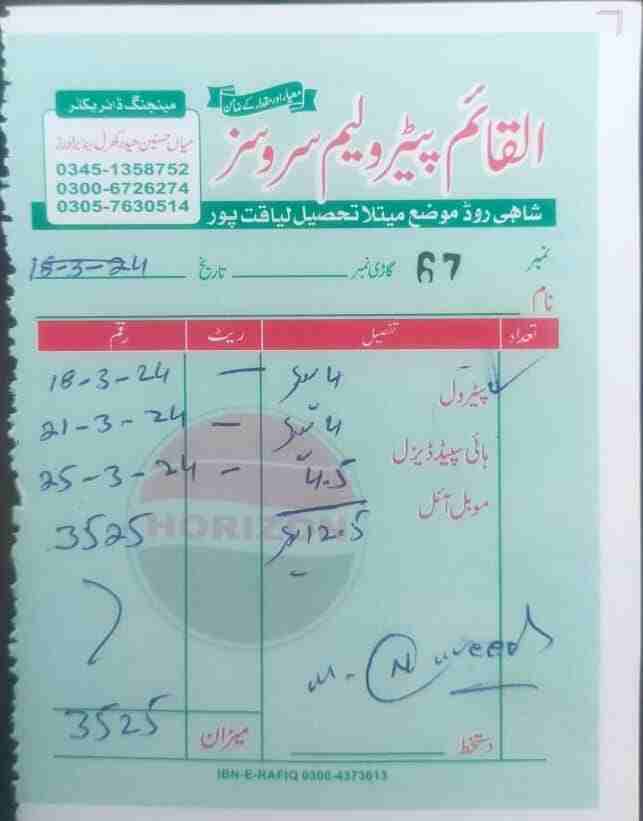 معیار اور مقدار کے ضامن
مینجنگ ڈائریکٹر
القائم پیٹرولیم سروسز
میاں حسنین حیدر کھرل اینڈ برادرز
0345-1358752
0300-6726274
0305-7630514
شاھی روڈ موضع میتلا تحصیل لیاقت پور
نمبر 67 گاڑی نمبر تاریخ 18-3-24
نام
تعداد تفصیل ریٹ رقم
پیٹرول 4 لیٹر - 18-3-24
4 لیٹر - 21-3-24
ہائی سپیڈ ڈیزل
4.5 - 25-3-24
موبل آئل
12.5 لیٹر 3525
HORIZON
M. Naveed
میزان 3525
دستخط
IBN-E-RAFIQ 0300-4373613